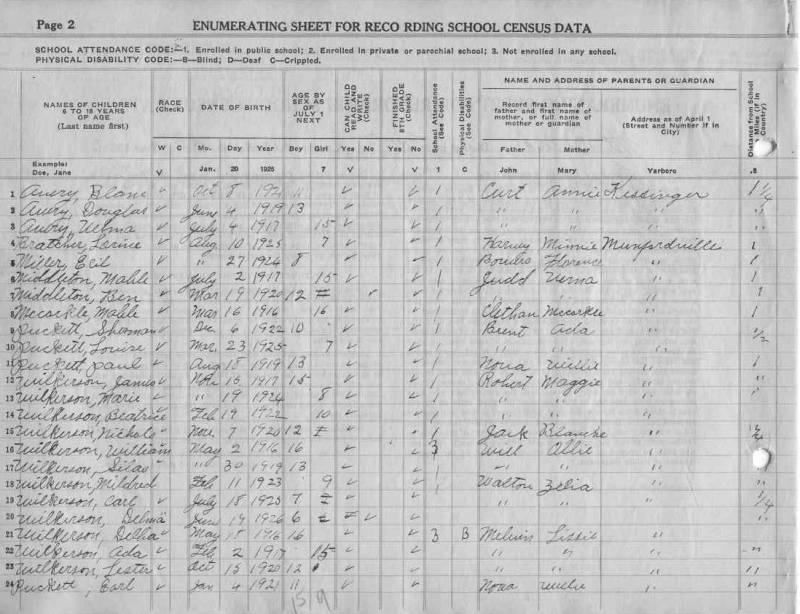 Page 2
ENUMERATING SHEET FOR RECO RDING SCHOOL CENSUS DATA
SCHOOL ATTENDANCE CODE:—1. Enrolled in public school; 2. Enrolled in private or parochial school; 3. Not enrolled in any school.
PHYSICAL DISABILITY CODE:—B—Blind; D—Deaf C—Crippled.
NAMES OF CHILDREN 6 TO 18 YEARS OF AGE (Last name first)
RACE (Check)
DATE OF BIRTH
AGE BY SEX AS OF JULY 1 NEXT
CAN CHILD READ AND WRITE (Check)
FINISHED 8TH GRADE (Check)
School Attendance (See Code)
Physical Disabilities (See Code)
NAME AND ADDRESS OF PARENTS OR GUARDIAN
Record first name of father and first name of mother, or full name of mother or guardian
Address as of April 1 (Street and Number if in City)
Distance from School Miles (if in Country)
W C Mo. Day Year Boy Girl Yes No Yes No Father Mother
Example: Doe, Jane V Jan. 20 1925 7 V V 1 C John Mary Yarboro .8
1 Avery, Blane ✓ Oct 8 11 ✓ ✓ 1 Curt Annie Kessinger 1 1/4
2 Avery, Douglas ✓ June 4 1919 13 ✓ ✓ 1 " " " "
3 Avery, Velma ✓ July 4 1917 15 ✓ ✓ 1 " " " "
4 Bratcher, Lorine ✓ Aug 10 1925 7 ✓ ✓ 1 Harvey Minnie Munfordville 1
5 Miller, Ecil ✓ " 27 1924 8 ✓ ✓ 1 Bowles Florence "
6 Middleton, Mable ✓ July 2 1917 15 ✓ ✓ 1 Judd Verna " 1
7 Middleton, Ben ✓ Mar 19 1920 12 ✓ ✓ 1 " " " "
8 Mccorkle, Mable ✓ Mar 16 1916 16 ✓ ✓ 1 Clethan Mccorkle " 1
9 Puckett, Sherman ✓ Dec 6 1922 10 ✓ ✓ 1 Brent Ada " 1/2
10 Puckett, Louise ✓ Mar. 23 1925 7 ✓ ✓ 1 " " " "
11 Puckett, Paul ✓ Aug 18 1919 13 ✓ ✓ 1 Nova Willie " 1
12 Wilkerson, James ✓ Nov 15 1917 15 ✓ ✓ 1 Robert Maggie " "
13 Wilkerson, Marie ✓ " 19 1924 8 ✓ ✓ 1 " " " "
14 Wilkerson, Beatrice Feb 19 1922 10 ✓ ✓ 1 " " " "
15 Wilkerson, Nichols ✓ Nov. 7 1920 12 ✓ ✓ 1 Jack Blanche "
16 Wilkerson, William May 2 1916 16 ✓ ✓ 3 Will Allie "
17 Wilkerson, Silas " 30 1919 13 ✓ ✓ 1 " " "
18 Wilkerson, Mildred Feb 11 1923 9 ✓ ✓ 1 Walton Zelia "
19 Wilkerson, Carl ✓ July 18 1925 7 ✓ ✓ 1 " " " 1/4
20 Wilkerson, Delma ✓ June 19 1926 6 ✓ ✓ 1 " " " "
21 Wilkerson, Della ✓ May 15 1916 16 ✓ ✓ 3 B Melvin Lissie "
22 Wilkerson, Ada ✓ Feb 2 1917 15 ✓ ✓ 1 " " " "
23 Wilkerson, Lester ✓ Oct 15 1920 12 ✓ ✓ 1 " " " "
24 Puckett, Earl ✓ Jan 4 1921 11 ✓ ✓ 1 Nova Willie " "
15 9